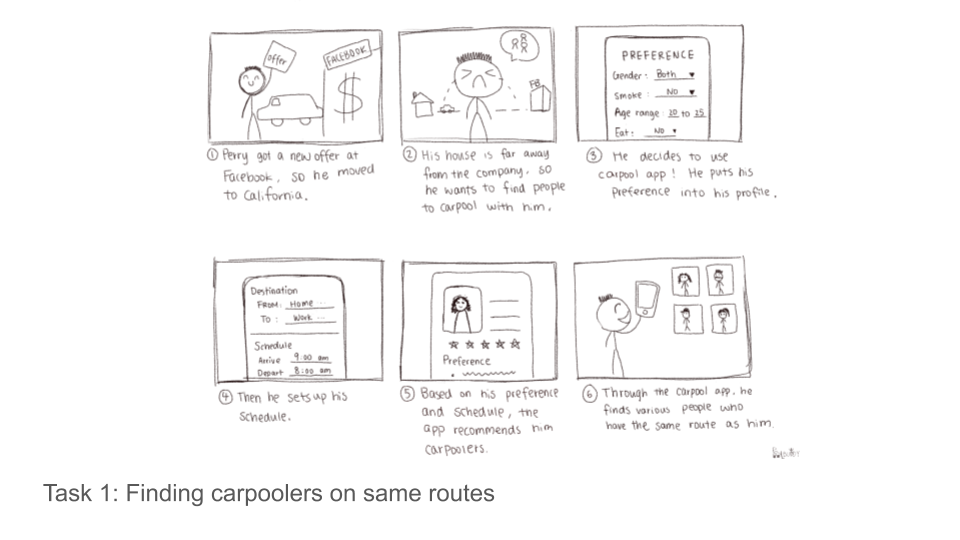 offer
FACEBOOK
$
① Perry got a new offer at
Facebook, so he moved
to California.
FB
② His house is far away
from the company. so
he wants to find people
to carpool with him.
PREFERENCE
Gender: Both ▼
Smoke: No ▼
Age range: 20 to 35
Eat: No ▼
③ He decides to use
carpool app! He puts his
Preference into his profile.
Destination
FROM: Home ...
To: Work ...
Schedule
Arrive 9:00 am
Depart 8:00 am
④ Then he sets up his
Schedule.
Preference
⑤ Based on his preference
and schedule, the
app recommends him
carpoolers.
⑥ Through the carpool app, he
finds various people who
have the same route as him.
Task 1: Finding carpoolers on same routes